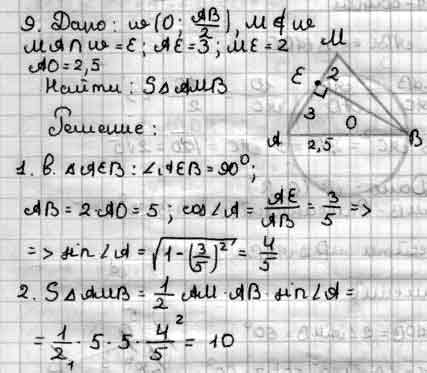 9. Дано: w(O; AB/2), M∉w
MA∩w=E; AE=3; ME=2
AO=2,5
Найти: S△AMB
Решение:
M
E 2
3
O
A 2,5 B
1. в. △AEB: ∠AEB=90°;
AB=2·AO=5; cos∠A=AE/AB=3/5=>
=> sin∠A=√(1-(3/5)²)=4/5
2. S△AMB=1/2 AM·AB·sin∠A=
=1/2·5·5·4/5=10
2
1